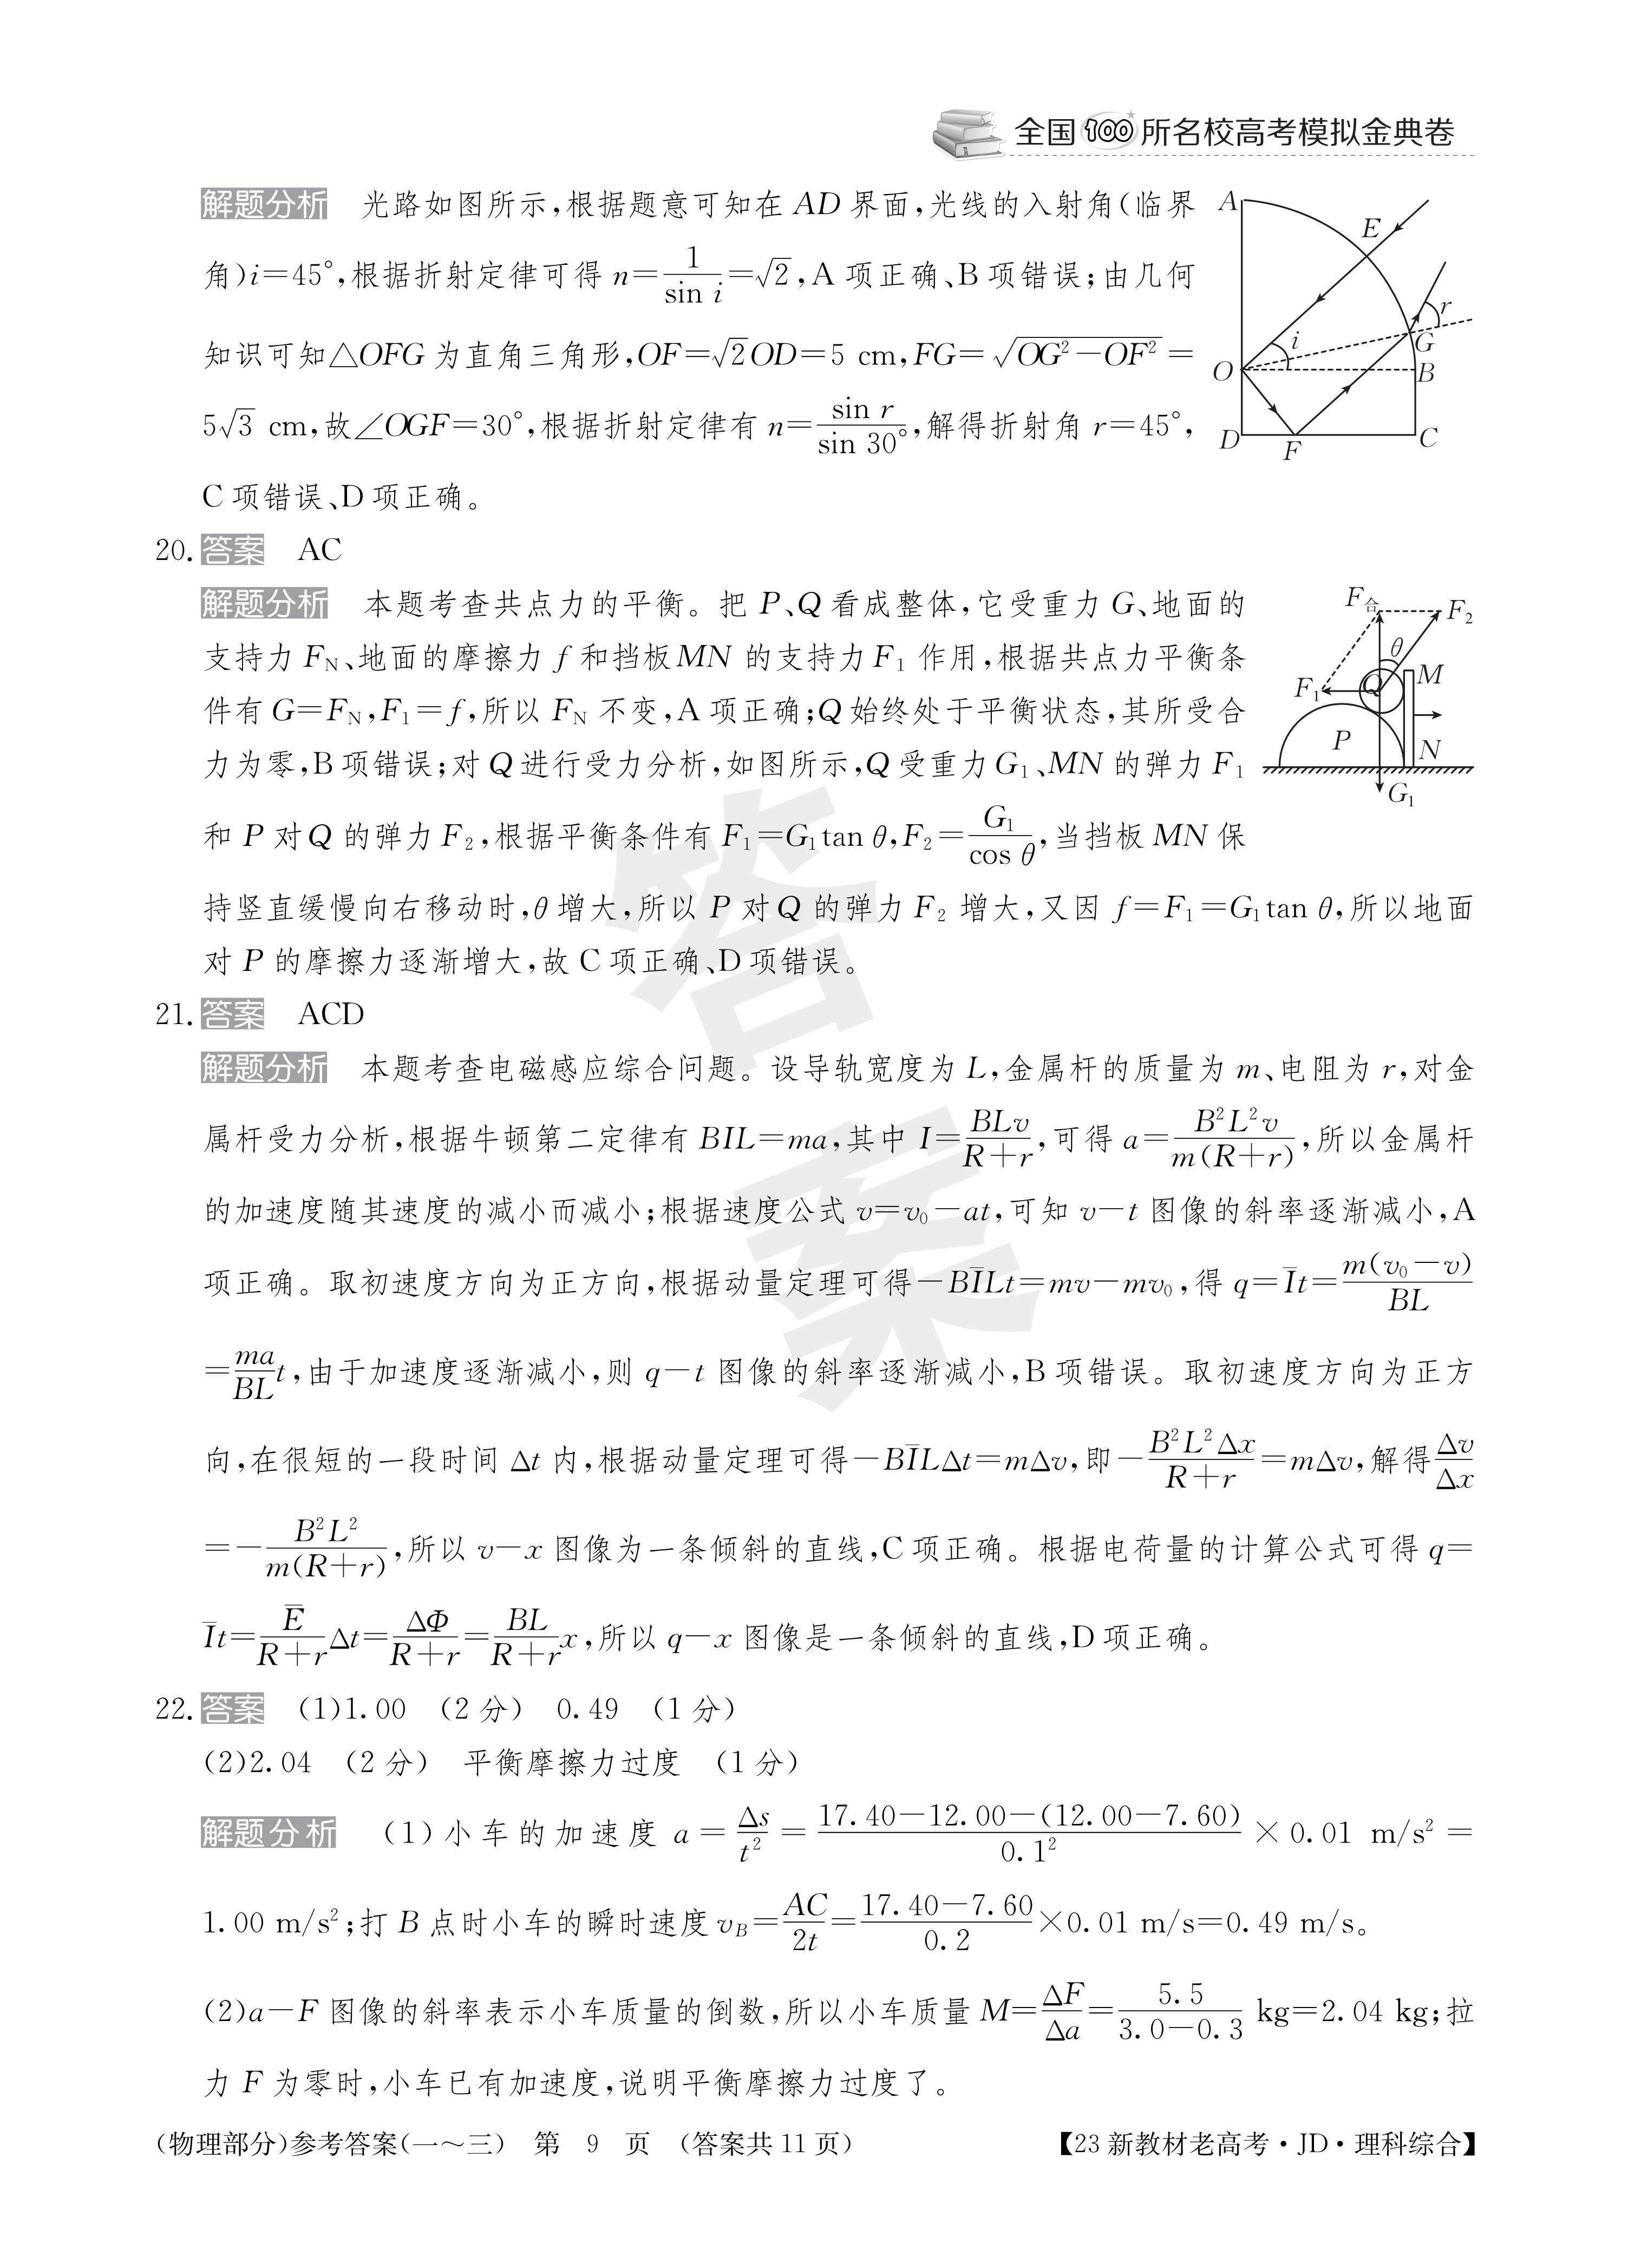 全国100所名校高考模拟金典卷
解题分析 光路如图所示,根据题意可知在 AD 界面,光线的入射角(临界
角)i=45°,根据折射定律可得 n=1/sin i=√2,A 项正确、B 项错误;由几何
知识可知△OFG 为直角三角形,OF=√2OD=5 cm,FG=√(OG²-OF²)=
5√3 cm,故∠OGF=30°,根据折射定律有 n=sin r/sin 30°,解得折射角 r=45°,
C 项错误、D 项正确。
A
E
r
G
i
O
B
D
F
C
20. 答案 AC
解题分析 本题考查共点力的平衡。把 P、Q 看成整体,它受重力 G、地面的
支持力 F_N、地面的摩擦力 f 和挡板MN 的支持力 F₁ 作用,根据共点力平衡条
件有 G=F_N,F₁=f,所以 F_N 不变,A 项正确;Q 始终处于平衡状态,其所受合
力为零,B 项错误;对 Q 进行受力分析,如图所示,Q 受重力 G₁、MN 的弹力 F₁
和 P 对 Q 的弹力 F₂,根据平衡条件有 F₁=G₁tan θ,F₂=G₁/cos θ,当挡板 MN 保
持竖直缓慢向右移动时,θ 增大,所以 P 对 Q 的弹力 F₂ 增大,又因 f=F₁=G₁tan θ,所以地面
对 P 的摩擦力逐渐增大,故 C 项正确、D 项错误。
F合
F₂
θ
F₁
Q
M
P
N
G₁
21. 答案 ACD
解题分析 本题考查电磁感应综合问题。设导轨宽度为 L,金属杆的质量为 m、电阻为 r,对金
属杆受力分析,根据牛顿第二定律有 BIL=ma,其中 I=BLv/(R+r),可得 a=B²L²v/(m(R+r)),所以金属杆
的加速度随其速度的减小而减小;根据速度公式 v=v₀-at,可知 v-t 图像的斜率逐渐减小,A
项正确。取初速度方向为正方向,根据动量定理可得-BI̅Lt=mv-mv₀,得 q=I̅t=m(v₀-v)/BL
=(ma/BL)t,由于加速度逐渐减小,则 q-t 图像的斜率逐渐减小,B 项错误。取初速度方向为正方
向,在很短的一段时间 Δt 内,根据动量定理可得-BI̅LΔt=mΔv,即-B²L²Δx/(R+r)=mΔv,解得Δv/Δx
=-B²L²/(m(R+r)),所以 v-x 图像为一条倾斜的直线,C 项正确。根据电荷量的计算公式可得 q=
I̅t=E̅/(R+r)Δt=ΔΦ/(R+r)=BL/(R+r)x,所以 q-x 图像是一条倾斜的直线,D 项正确。
22. 答案 (1)1.00 (2 分) 0.49 (1 分)
(2)2.04 (2 分) 平衡摩擦力过度 (1 分)
解题分析 (1)小车的加速度 a=Δs/t²=(17.40-12.00-(12.00-7.60))/0.1²×0.01 m/s²=
1.00 m/s²;打 B 点时小车的瞬时速度 v_B=AC/2t=(17.40-7.60)/0.2×0.01 m/s=0.49 m/s。
(2)a-F 图像的斜率表示小车质量的倒数,所以小车质量 M=ΔF/Δa=5.5/(3.0-0.3) kg=2.04 kg;拉
力 F 为零时,小车已有加速度,说明平衡摩擦力过度了。
答案
(物理部分)参考答案(一~三) 第 9 页 (答案共 11 页)
【23 新教材老高考·JD·理科综合】